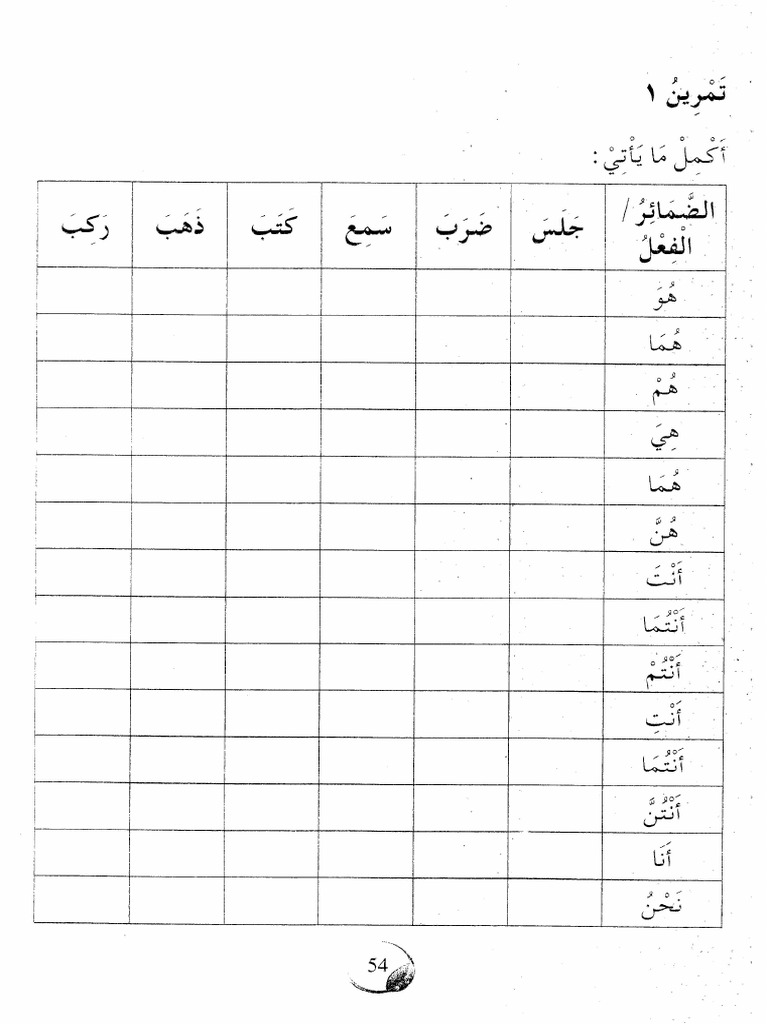 تَمْرِينُ ١
أَكْمِلْ مَا يَأْتِيْ :
الضَّمَائِرُ / الْفِعْلُ جَلَسَ ضَرَبَ سَمِعَ كَتَبَ ذَهَبَ رَكِبَ
هُوَ
هُمَا
هُمْ
هِيَ
هُمَا
هُنَّ
أَنْتَ
أَنْتُمَا
أَنْتُمْ
أَنْتِ
أَنْتُمَا
أَنْتُنَّ
أَنَا
نَحْنُ
54